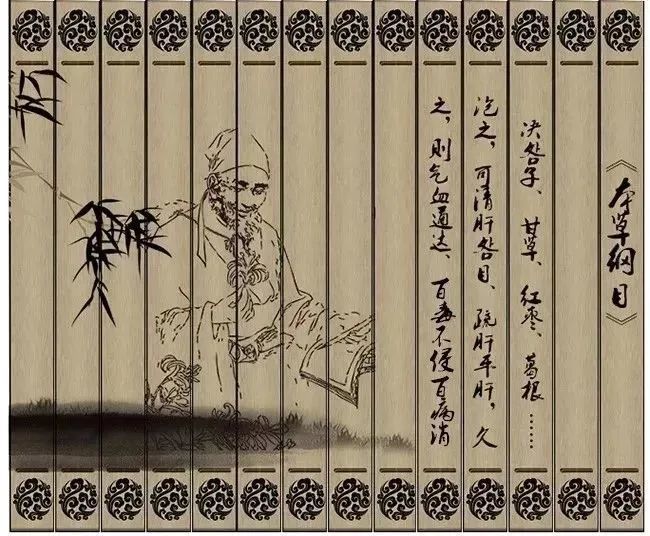 《本草纲目》
决明子、甘草、红枣、葛根……
泡之，可清肝明目、疏肝平肝，久
之，则气血通达、百毒不侵百病消